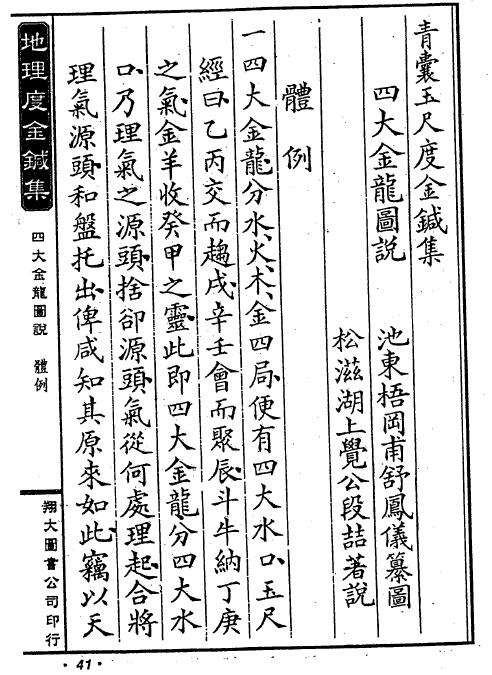 青囊玉尺度金鍼集
四大金龍圖說
池東梧岡甫舒鳳儀纂圖
松滋湖上覺公段喆著說
體例
一四大金龍分水、火、木、金四局便有四大水口、玉尺
經曰、乙丙交而趨戌辛壬會而聚辰斗牛納丁庚
之氣金羊收癸甲之靈此即四大金龍分四大水
口、乃理氣之源頭捨卻源頭氣從何處理起合將
理氣源頭和盤托出俾咸知其原來如此竊以天
地理度金鍼集
四大金龍圖說 體例
翔大圖書公司印行
·41·